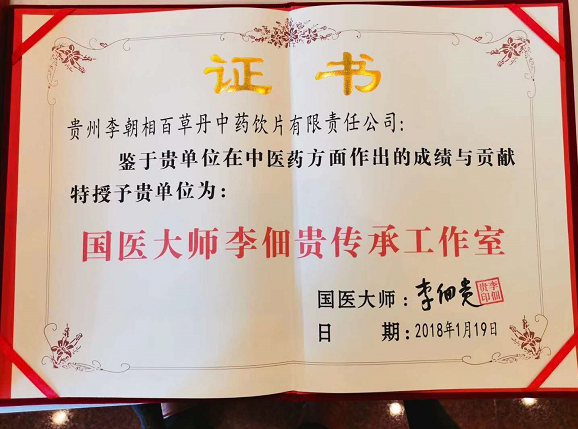 证书
贵州李朝相百草丹中药饮片有限责任公司:
鉴于贵单位在中医药方面作出的成绩与贡献
特授予贵单位为:
国医大师李佃贵传承工作室
国医大师:李佃贵
李佃贵印
日 期:2018年1月19日